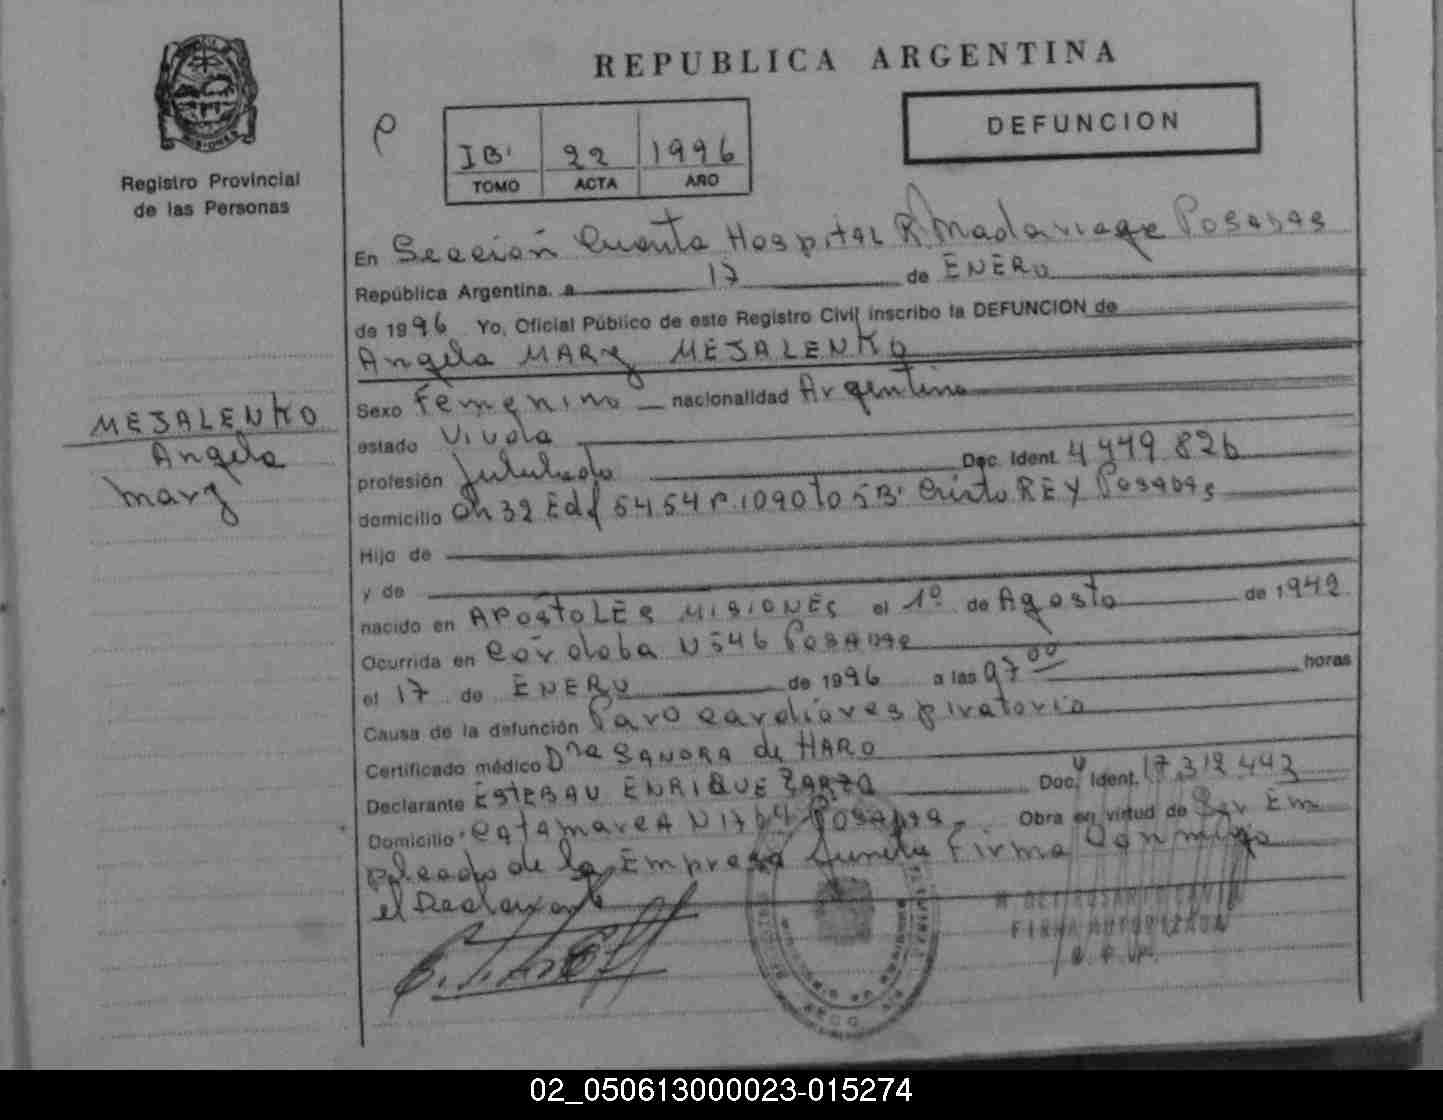 MISIONES
Registro Provincial
de las Personas
REPUBLICA ARGENTINA
DEFUNCION
IB' 22 1996
TOMO ACTA AÑO
En Sección Cuarta Hospital R Madariaga Posadas
República Argentina, a 17 de ENERO
de 1996 Yo, Oficial Público de este Registro Civil inscribo la DEFUNCION de
Angela MARY MEJALENKO
MEJALENKO
Angela
Mary
Sexo Femenino nacionalidad Argentina
estado Viuda
profesión Jubilada Doc. Ident. 4449826
domicilio Ch 32 Edf 5454 P. 1090 to 5B' Cristo REY Posadas
Hijo de
y de
nacido en APÓSTOLES MISIONES el 1º de Agosto de 1942
Ocurrida en Córdoba N546 Posadas
el 17 de ENERO de 1996 a las 07 00 horas
Causa de la defunción Paro cardiorespiratorio
Certificado médico Dra SANDRA de HARO
Declarante ESTEBAN ENRIQUE ZARZA Doc. Ident. 17.312.443
Domicilio Catamarca N1764 Posadas Obra en virtud de Ser Em
pleado de la Empresa Funebre Firma conmigo
el Declarante
FIRMA AUTORIZADA
02_050613000023-015274